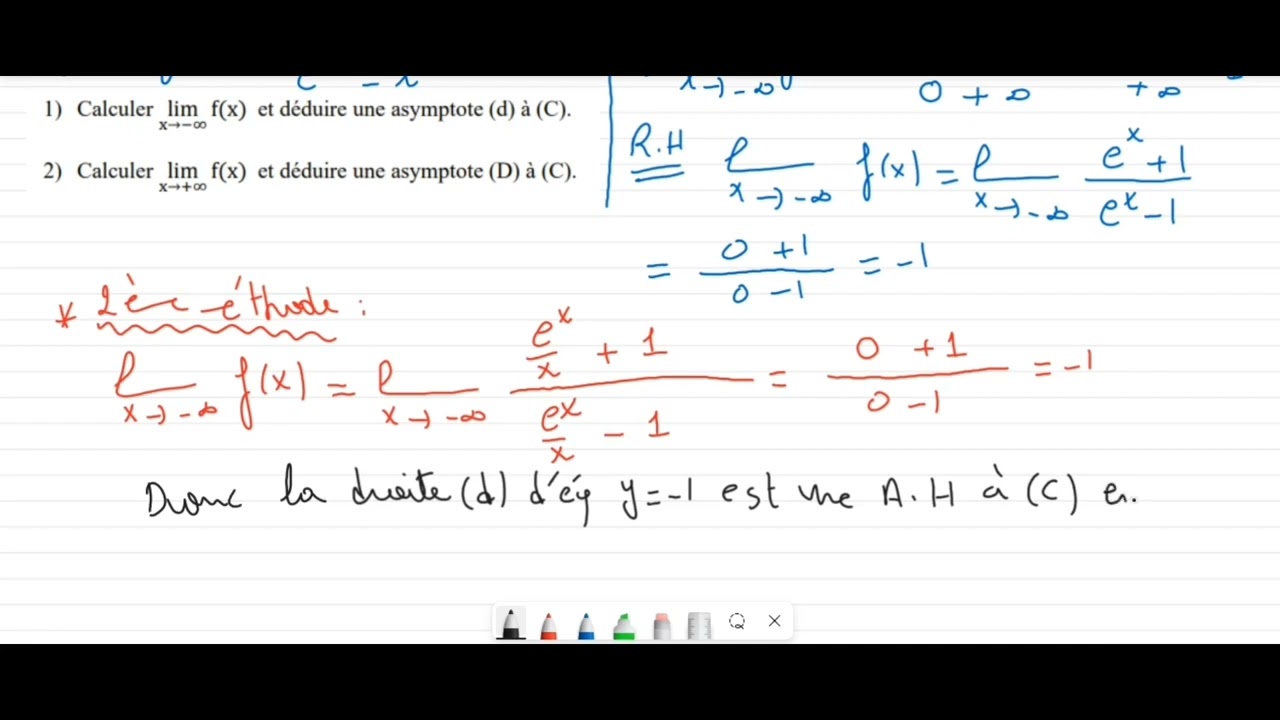 1) Calculer lim f(x) et déduire une asymptote (d) à (C).
x→−∞
2) Calculer lim f(x) et déduire une asymptote (D) à (C).
x→+∞
x→−∞
0 + ∞
+ ∞
R.H
l f(x) = l e^x + 1 / e^x − 1
x→−∞ x→−∞
= 0 + 1 / 0 − 1 = −1
* 2è éthode :
l f(x) = l e^x/x + 1 / e^x/x − 1 = 0 + 1 / 0 − 1 = −1
x→−∞ x→−∞
Donc la droite (d) d'éq y = −1 est une A.H à (C) en.